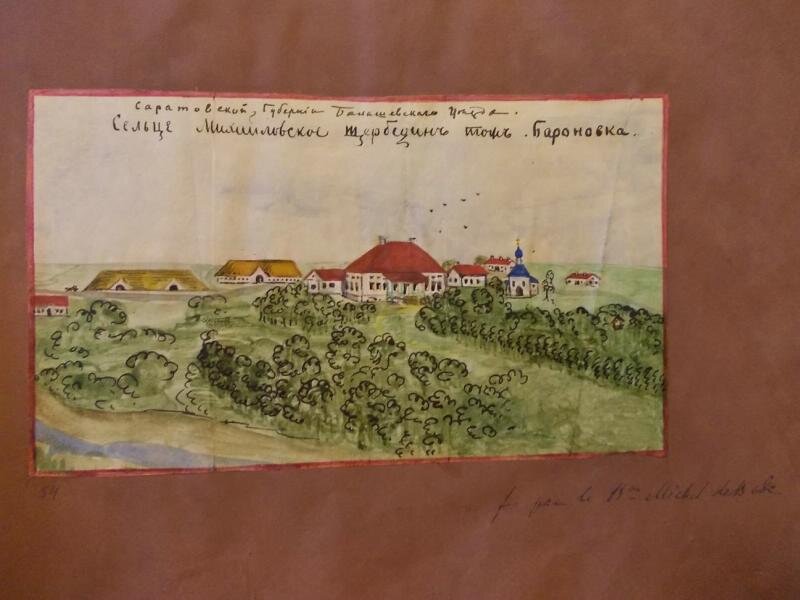 Саратовской, Губернiи Балашевскаго Уѣзда.
Сельце Михаиловское Щербединъ тожъ. Бароновка.
54
par le Bon Michel de Bode